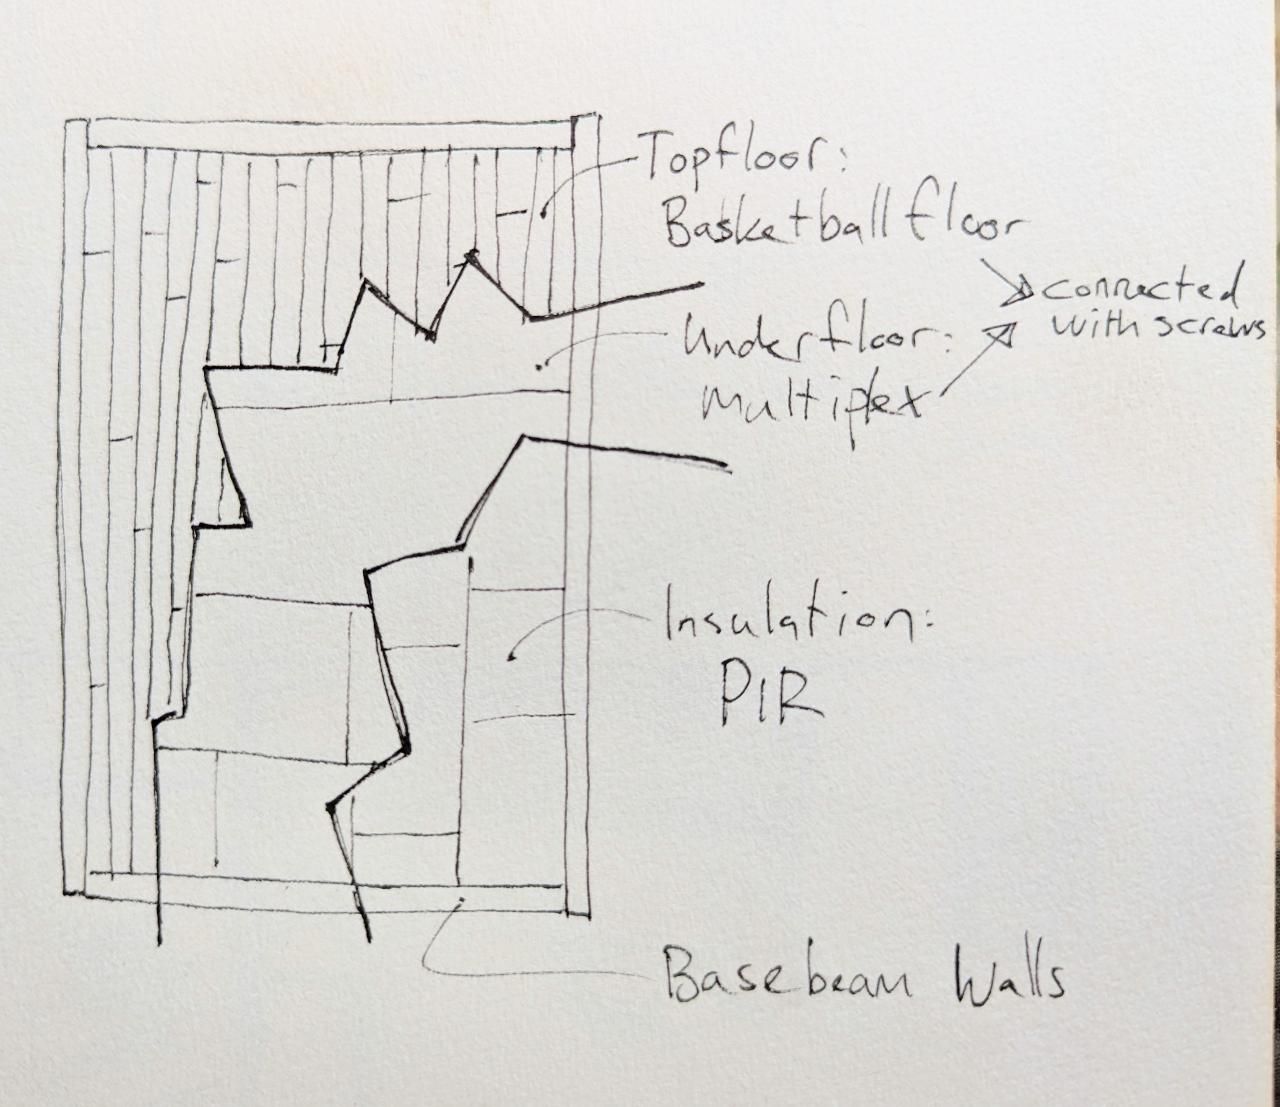 Topfloor:
Basketball floor
connected
with screws
Underfloor:
Multiplex
Insulation:
PIR
Basebeam Walls